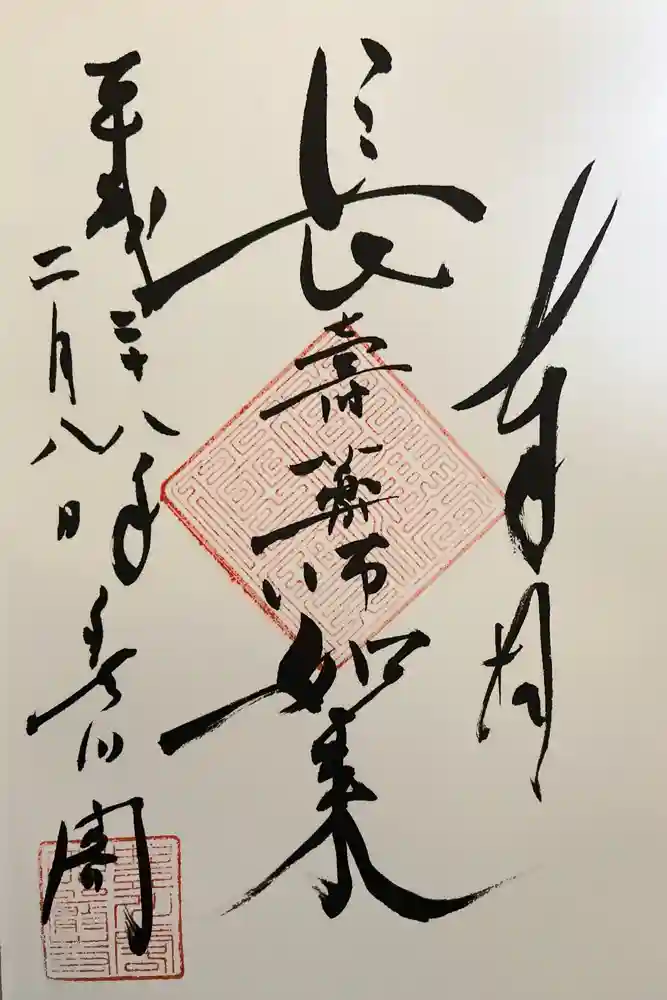 奉拝
長壽薬師如来
平成二十八年
二月八日